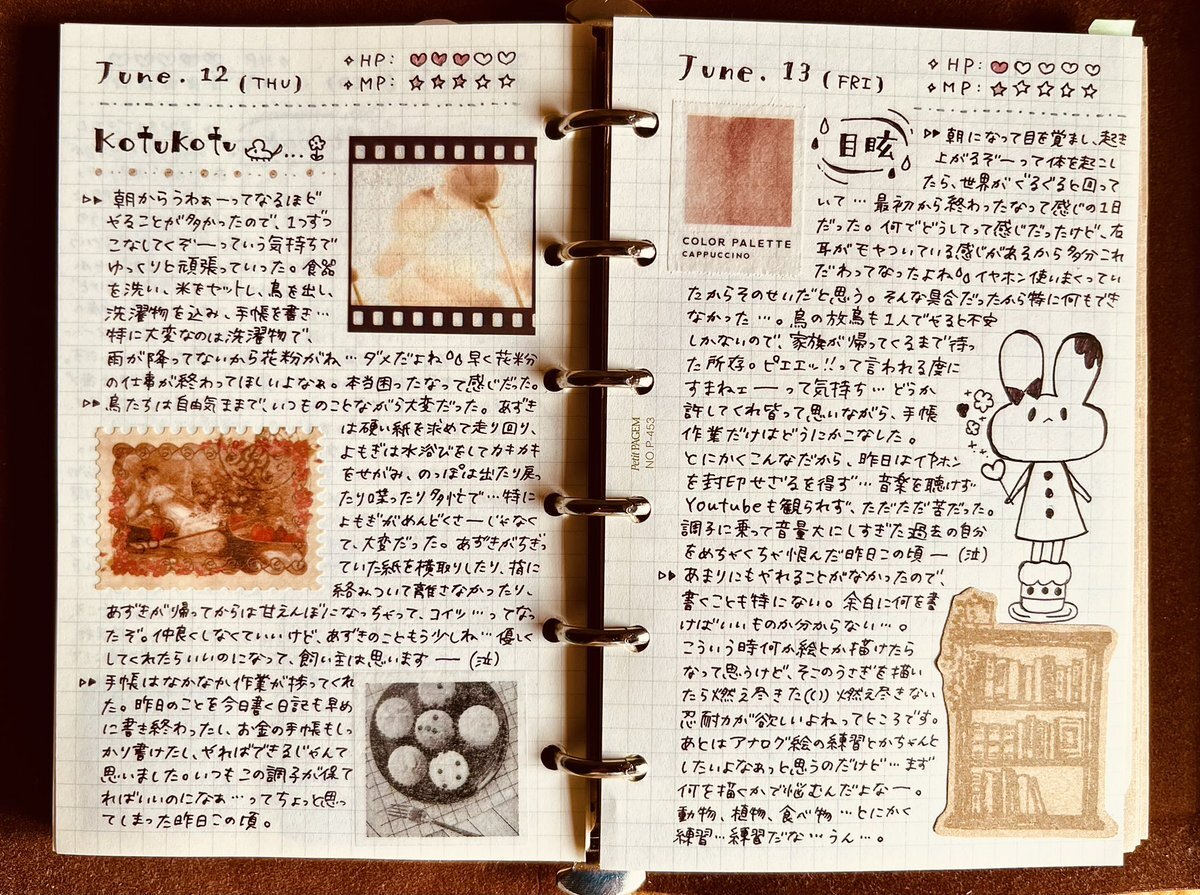 June. 12 (THU)
HP:
MP:
Kotukotu
朝からうわぁーってなるほど
やることが多かったので、1つずつ
こなしてくぞーっていう気持ちで
ゆっくりと頑張っていった。食器
を洗い、米をセットし、鳥を出し、
洗濯物を込み、手帳を書き…
特に大変なのは洗濯物で、
雨が降ってないから花粉がね…ダメだよね 早く花粉
の仕事が終わってほしいよなぁ。本当困ったなって感じだった。
鳥たちは自由気ままで、いつものことながら大変だった。あずき
は硬い紙を求めて走り回り、
よもぎは水浴びをしてカキカキ
をせがみ、のっぽは出たり戻っ
たり喋ったり多忙で…特に
よもぎがめんどくさーじゃなく
て、大変だった。あずきがちぎっ
ていた紙を横取りしたり、指に
絡みついて離さなかったり、
あずきが帰ってからは甘えんぼになっちゃって、コイツ…ってなっ
たぞ。仲良くしなくていいけど、あずきのこともう少しね…優しく
してくれたらいいのになって、飼い主は思います ー (泣)
手帳はなかなか作業が捗ってくれ
た。昨日のことを今日書く日記も早め
に書き終わったし、お金の手帳もしっ
かり書けたし、やればできるじゃんて
思いました。いつもこの調子が保て
ればいいのになぁ…ってちょっと思っ
てしまった昨日この頃。
June. 13 (FRI)
HP:
MP:
COLOR PALETTE
CAPPUCCINO
目眩
朝になって目を覚まし、起き
上がるぞーって体を起こし
たら、世界がぐるぐると回って
いて…最初から終わったなって感じの1日
だった。何でどうしてって感じだったけど、右
耳がモヤついている感じがあるから多分これ
だわってなったよね イヤホン使いまくってい
たからそのせいだと思う。そんな具合だったから特に何もでき
なかった…。鳥の放鳥も1人でやると不安
しかないので、家族が帰ってくるまで待っ
た所存。ピエエッ!!って言われる度に
すまねェーーって気持ち…どうか
許してくれ皆って思いながら、手帳
作業だけはどうにかこなした。
とにかくこんなだから、昨日はイヤホン
を封印せざるを得ず…音楽を聴けず
Youtubeも観られず、ただただ苦だった。
調子に乗って音量大にしすぎた過去の自分
をめちゃくちゃ恨んだ昨日この頃 ー (泣)
あまりにもやれることがなかったので、
書くことも特にない。余白に何を書
けばいいものか分からない…。
こういう時何か絵とか描けたら
なって思うけど、そこのうさぎを描い
たら燃え尽きた 燃え尽きない
忍耐力が欲しいよねってところです。
あとはアナログ絵の練習とかちゃんと
したいよなぁっと思うのだけど…まず
何を描くかで悩むんだよなー。
動物、植物、食べ物…とにかく
練習…練習だな…うん…。
Petit PAGEM
NO P-453